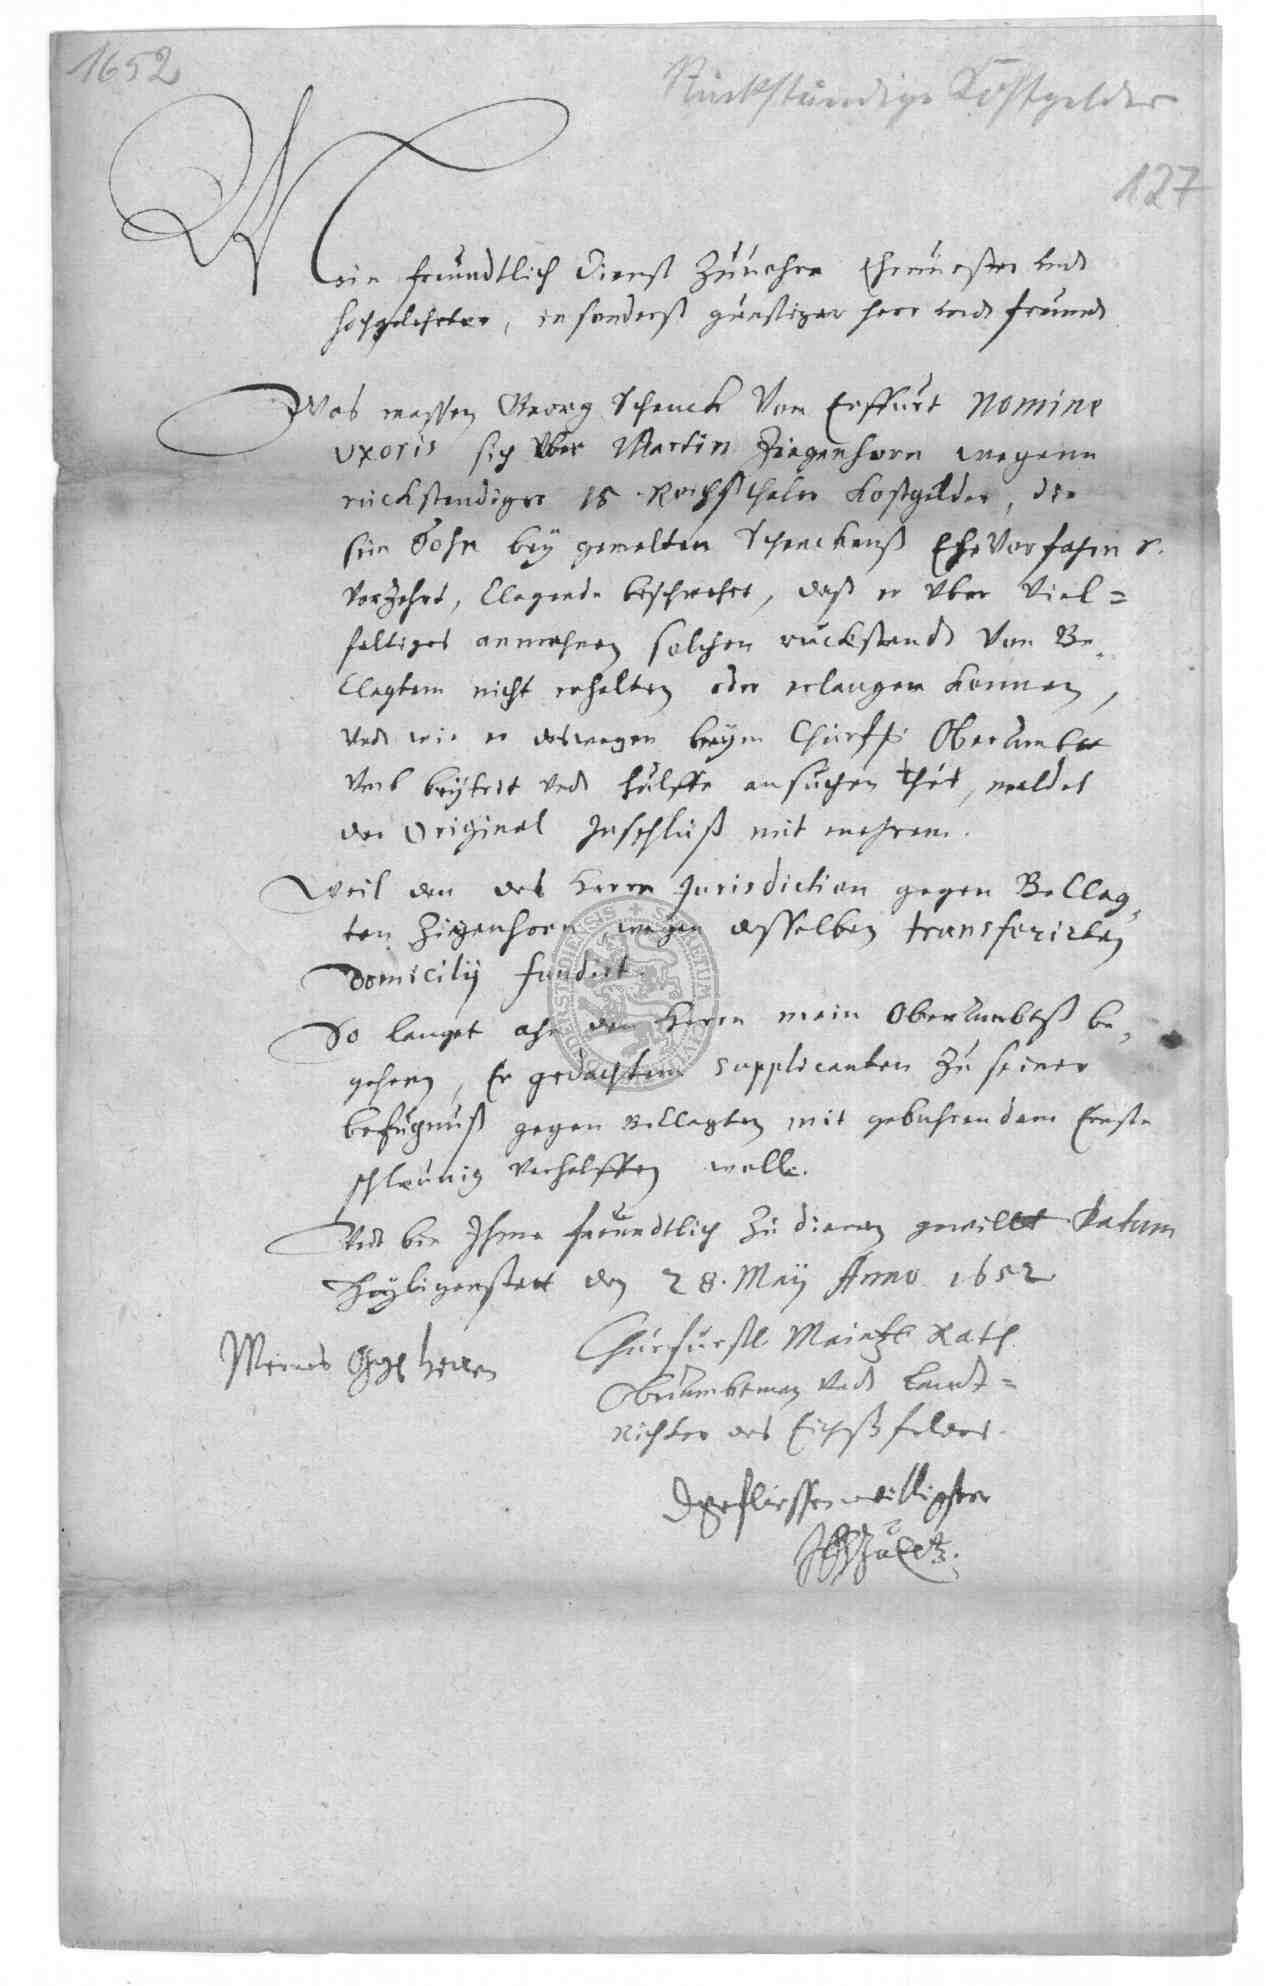 1652
Rückständige Kostgelder
127
Mein freundtlich dienst Zuuohrn Ehrnuester undt
hochgelehrter, insonderß günstiger herr undt freundt
Was massen Georg Schenck Von Erffurt Nomine
uxoris sich uber Martin Ziegenhorn wegenn
rückstendiger 15 Reichsthaler Kostgelder, die
sein Sohn bey gemelten Schenckenß EheVorfahrn
Verzehrt, Clagende beschwehrt, daß er uber Viel=
feltiges anmahnen solchen rückstandt Von Be
Clagtem nicht erhalten oder erlangen konnen,
undt wie er deswegen beym Churf. Oberambte
umb beytrit undt hülffe ansuchen thut, meldet
der Original Inschluß mit mehrem.
Weil den des Herrn Jurisdiction gegen Beclag
ten Zigenhorn wegen desselben transferirten
Domicilij fundirt.
So langet ahn den Herrn mein Oberambtß be
gehren, Er gedachtem Supplicanten Zu seiner
befugnuß gegen Beclagten mit gebuhrendem Ernste
schleunig verhelffen wolle.
Undt bin Ihme freundtlich Zu dienen gewillt Datum
Heyligenstatt den 28. Maij Anno 1652
Churfürstl. Maintz. Rath
Oberambtman undt Landt=
Richter des Eichßfeldes.
Meines Herren
SIGILLUM CIVITATIS DUDERSTADIENSIS